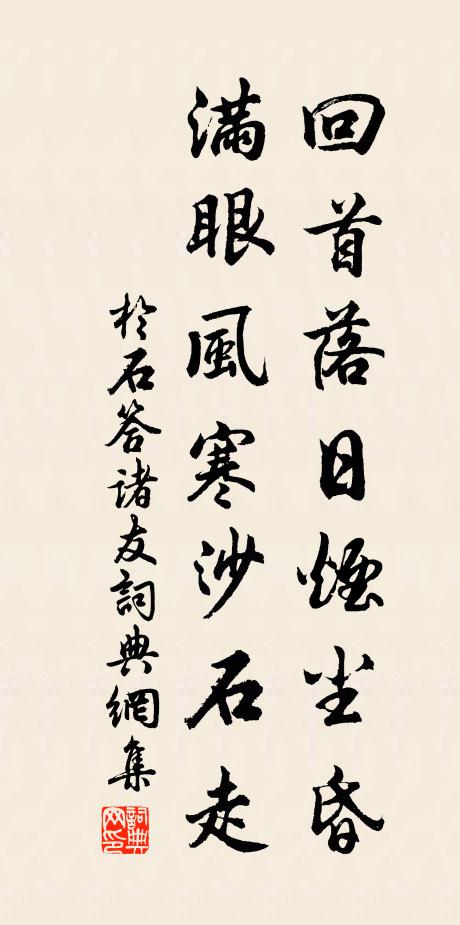 回首落日煙尘昏
滿眼風寒沙石走
於石答諸友詞典網集
詞典網印